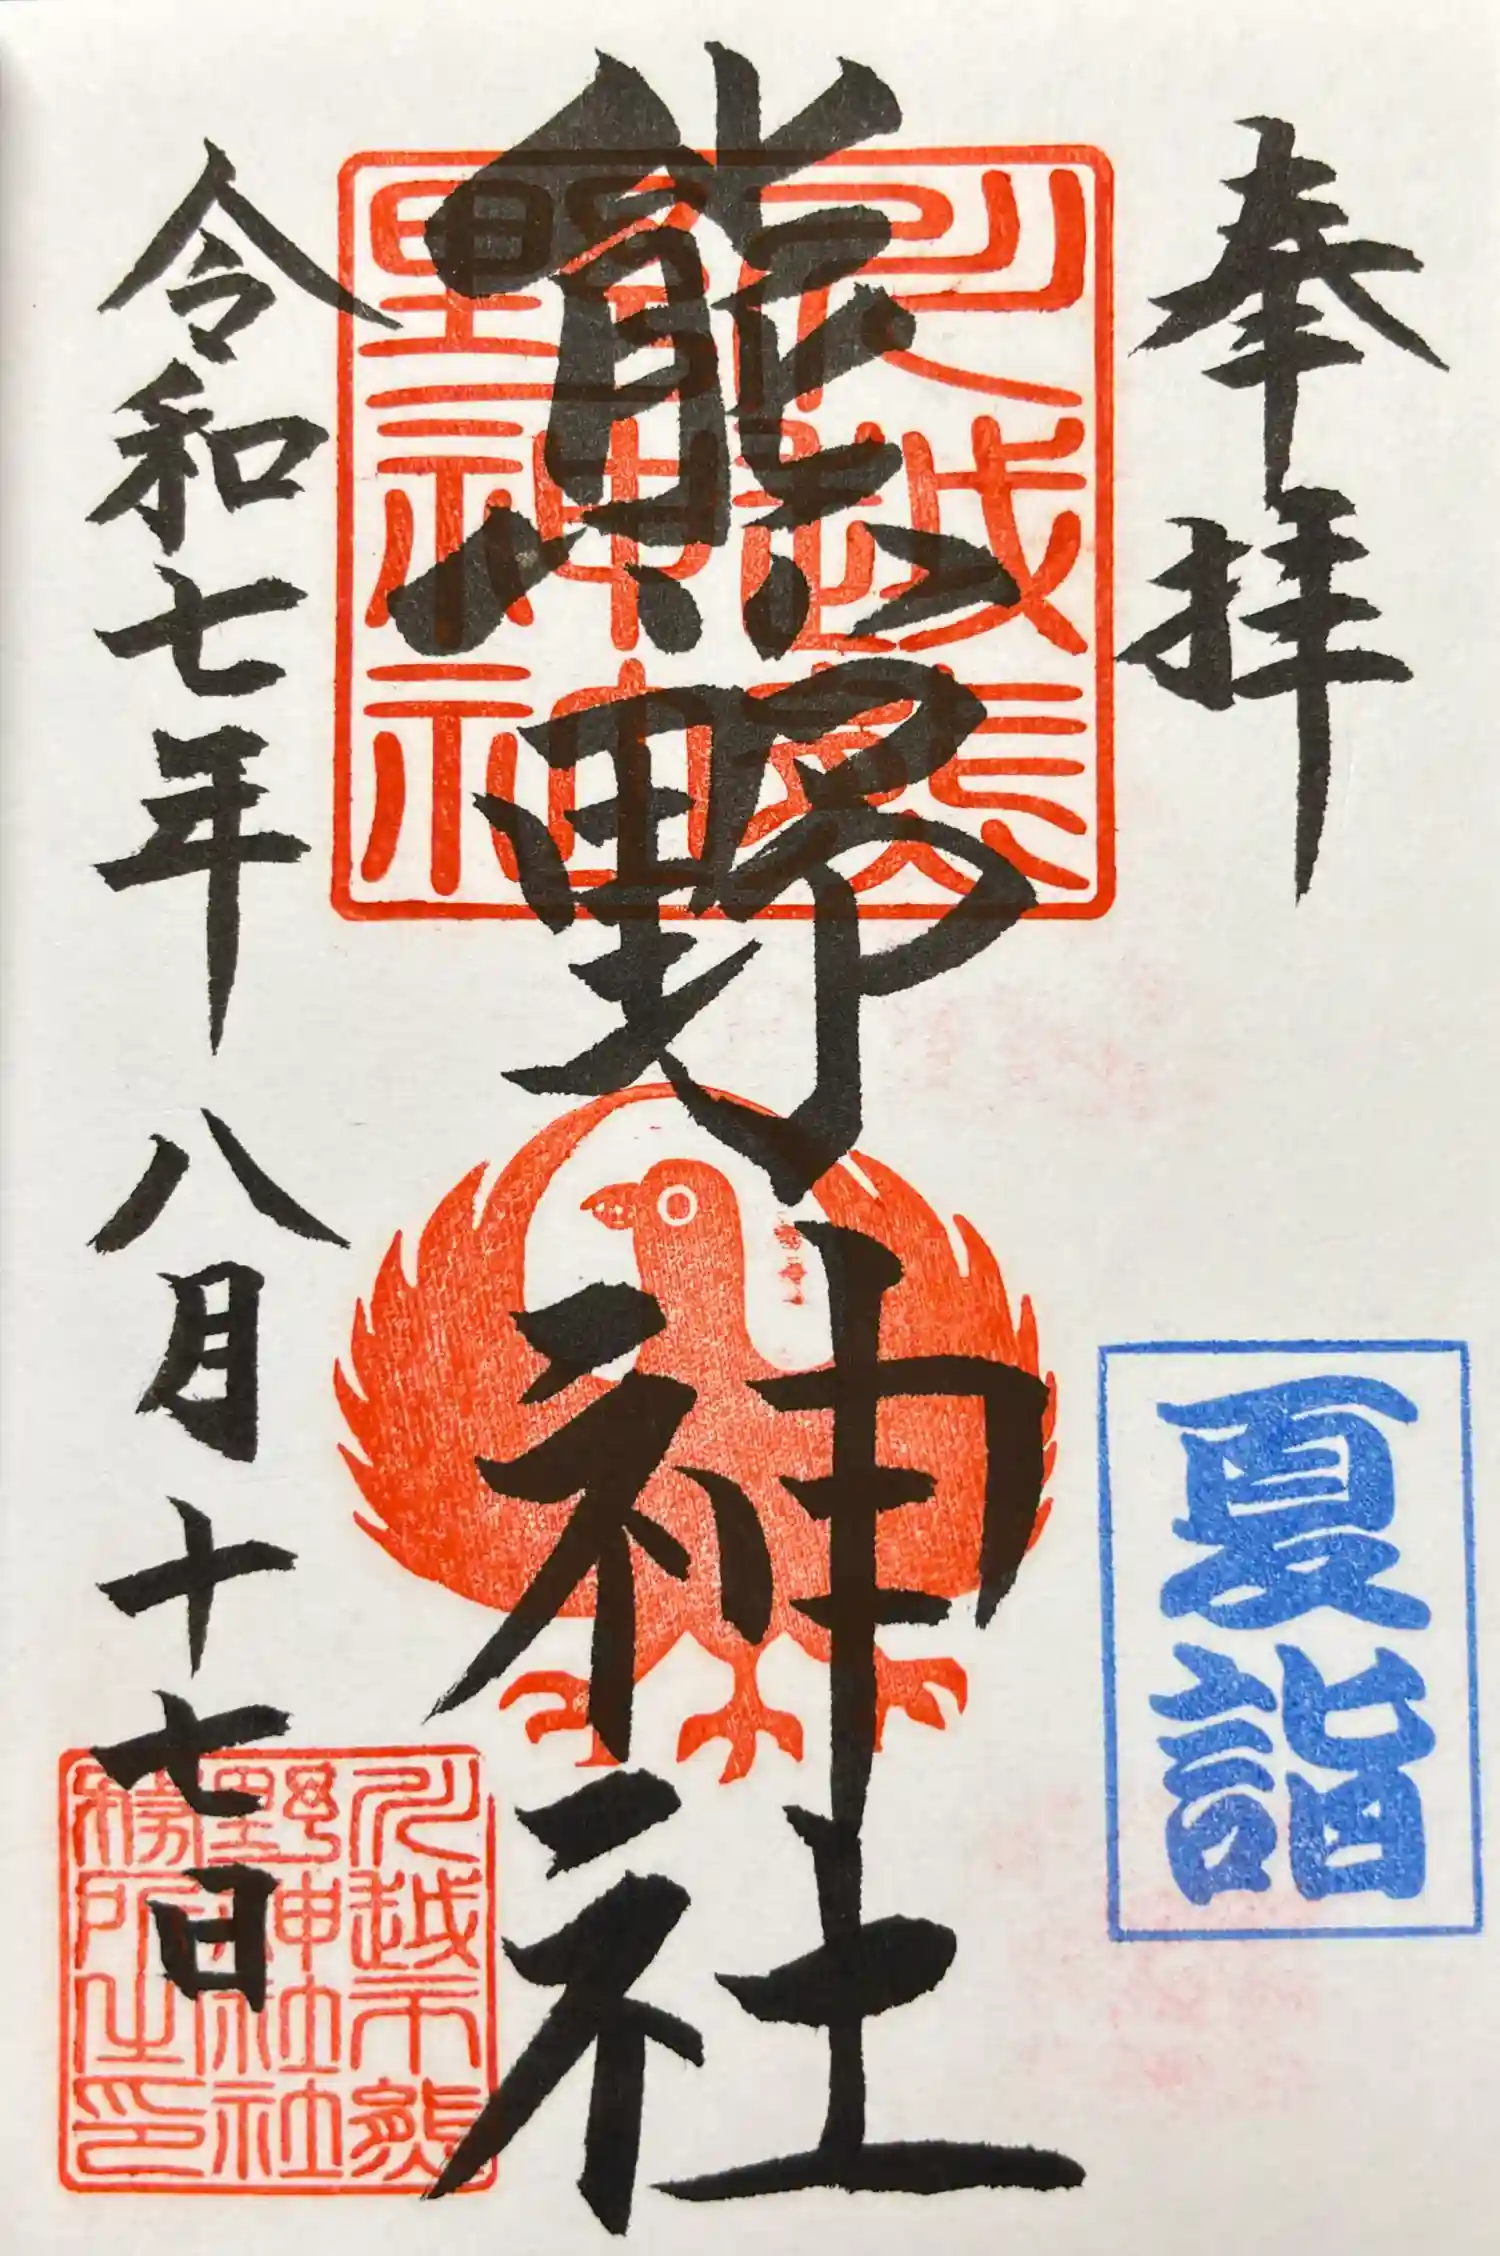 奉拝
夏詣
熊野神社
川越熊
野神社
令和七年八月十七日
川越市熊
野神社社
務所之印